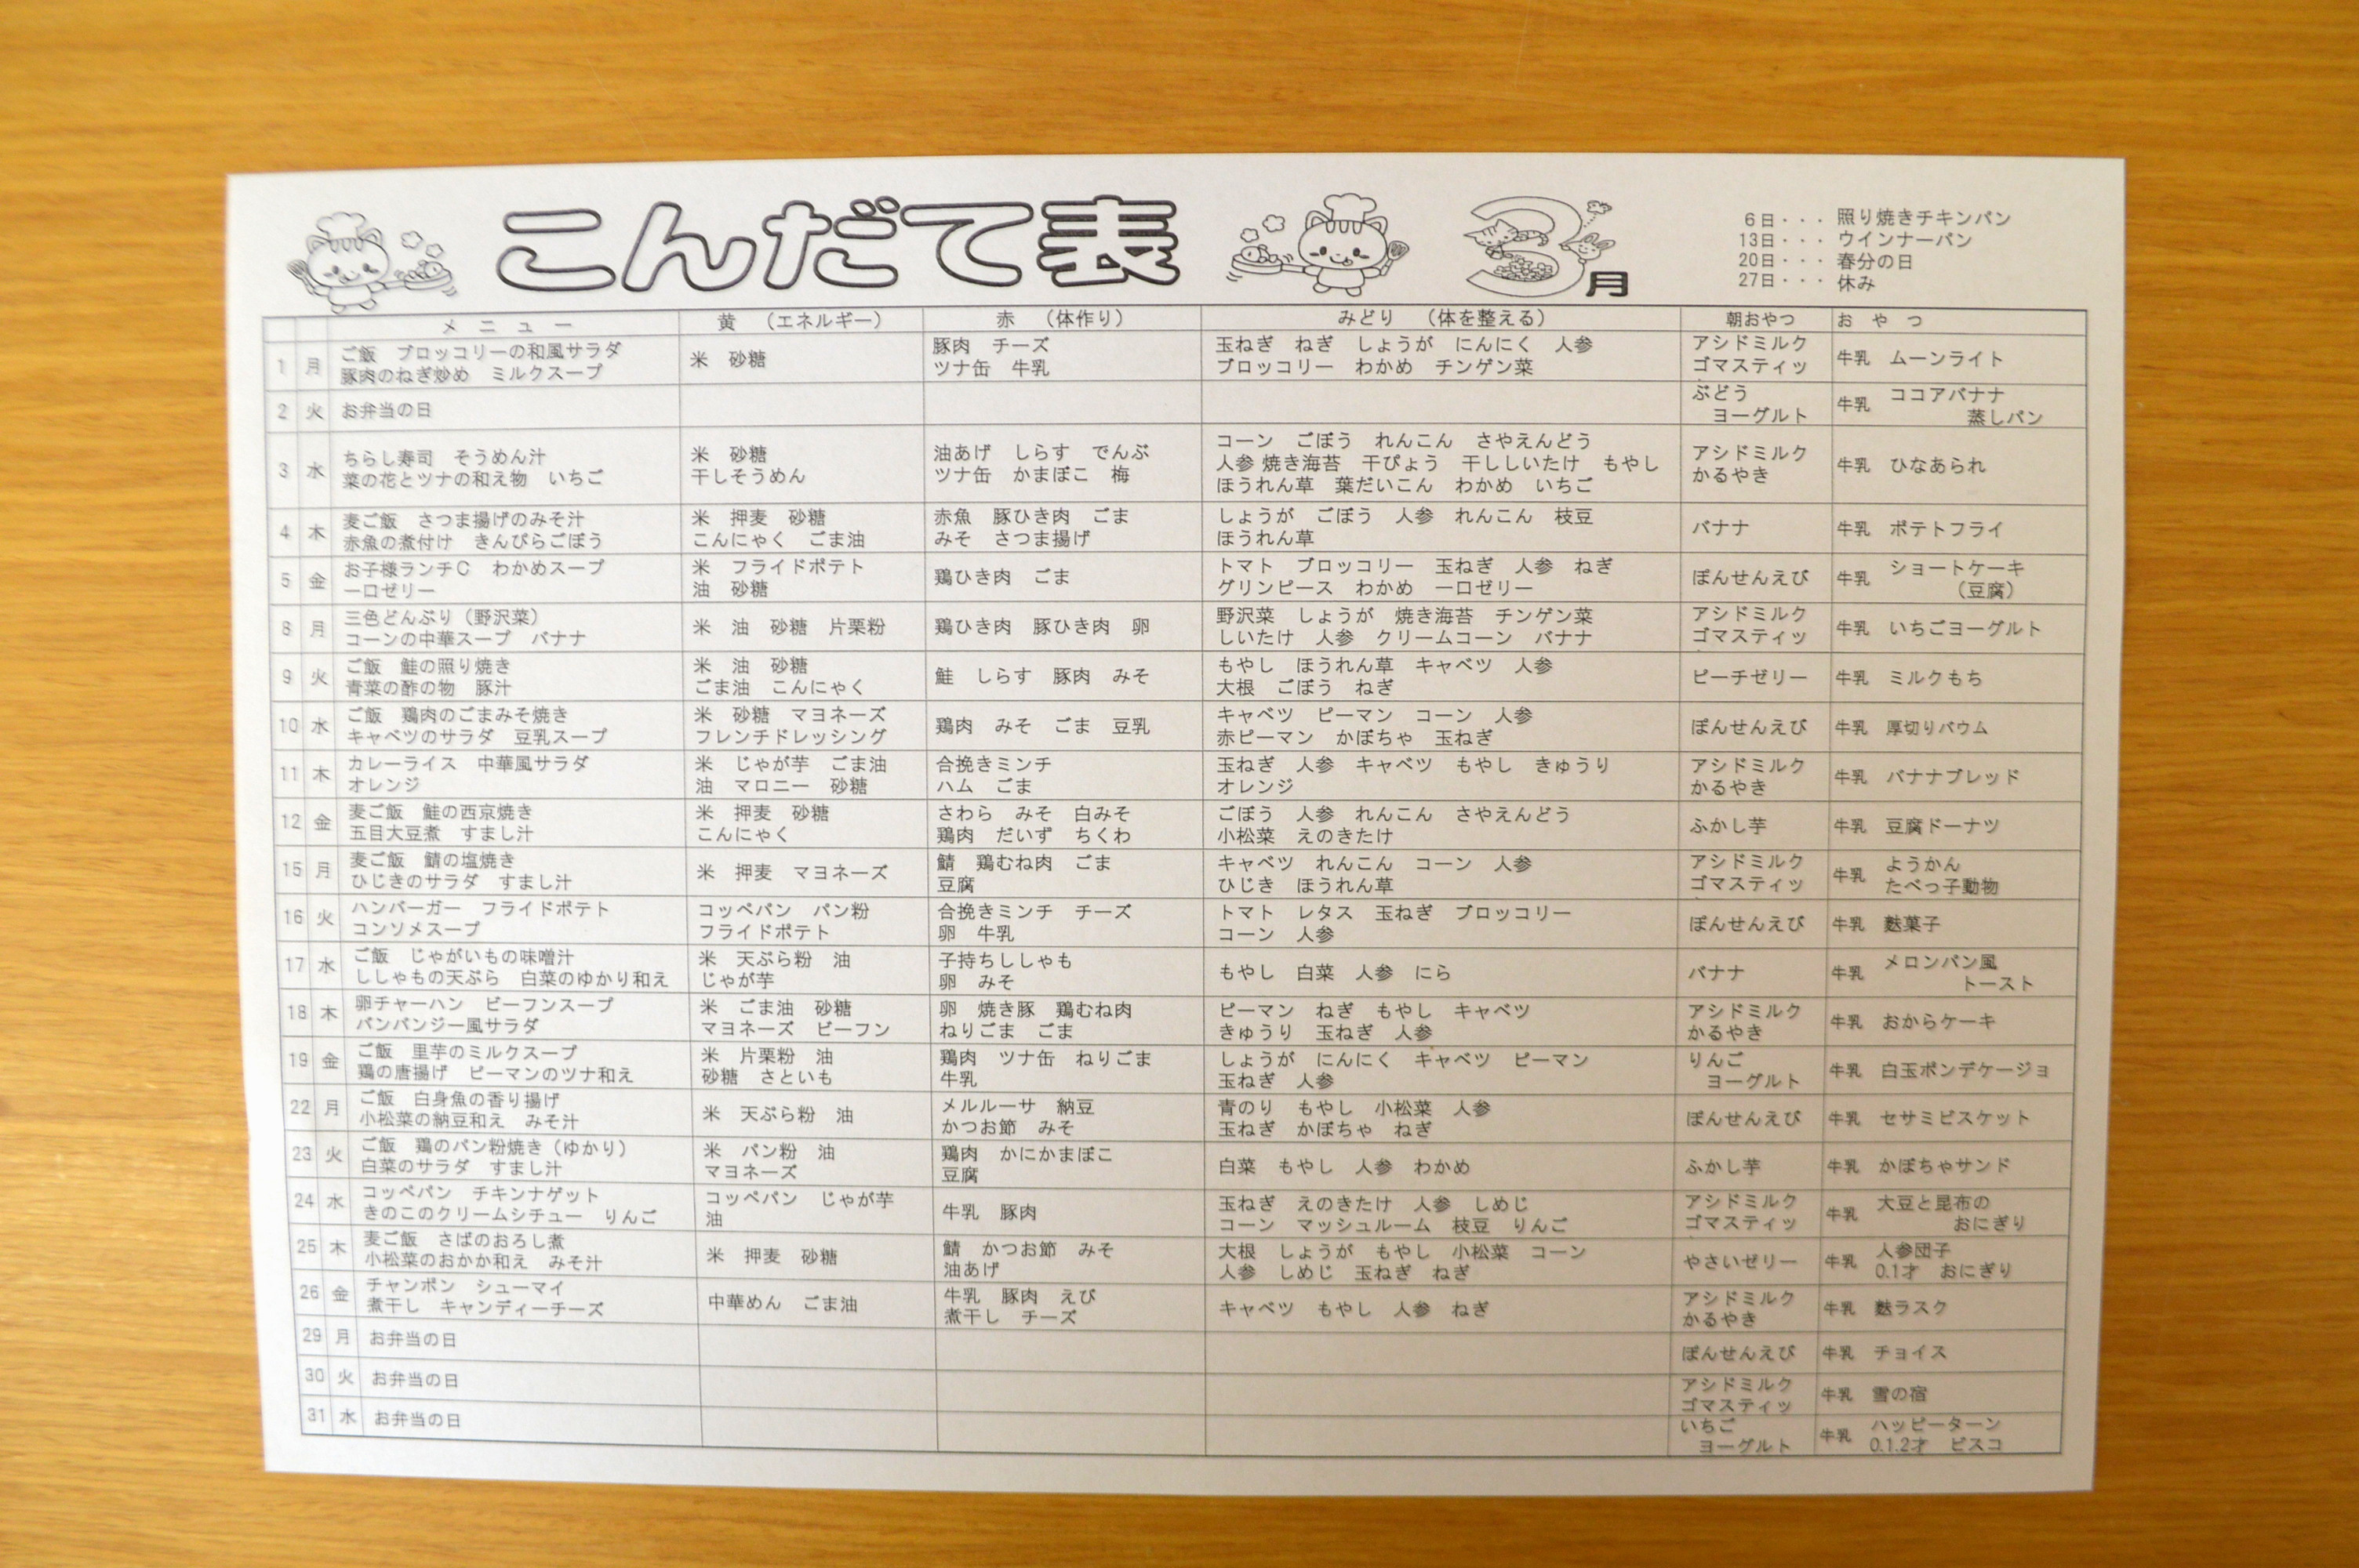 こんだて表
3月
6日・・・ 照り焼きチキンパン
13日・・・ ウインナーパン
20日・・・ 春分の日
27日・・・ 休み
メニュー 黄 （エネルギー） 赤 （体作り） みどり （体を整える） 朝おやつ おやつ
1 月 ご飯 ブロッコリーの和風サラダ 豚肉のねぎ炒め ミルクスープ 米 砂糖 豚肉 チーズ ツナ缶 牛乳 玉ねぎ ねぎ しょうが にんにく 人参 ブロッコリー わかめ チンゲン菜 アシドミルク ゴマスティッ 牛乳 ムーンライト
2 火 お弁当の日 ぶどう ヨーグルト 牛乳 ココアバナナ 蒸しパン
3 水 ちらし寿司 そうめん汁 菜の花とツナの和え物 いちご 米 砂糖 干しそうめん 油あげ しらす でんぶ ツナ缶 かまぼこ 梅 コーン ごぼう れんこん さやえんどう 人参 焼き海苔 干ぴょう 干ししいたけ もやし ほうれん草 葉だいこん わかめ いちご アシドミルク かるやき 牛乳 ひなあられ
4 木 麦ご飯 さつま揚げのみそ汁 赤魚の煮付け きんぴらごぼう 米 押麦 砂糖 こんにゃく ごま油 赤魚 豚ひき肉 ごま みそ さつま揚げ しょうが ごぼう 人参 れんこん 枝豆 ほうれん草 バナナ 牛乳 ポテトフライ
5 金 お子様ランチC わかめスープ 一口ゼリー 米 フライドポテト 油 砂糖 鶏ひき肉 ごま トマト ブロッコリー 玉ねぎ 人参 ねぎ グリンピース わかめ 一口ゼリー ぽんせんえび 牛乳 ショートケーキ （豆腐）
8 月 三色どんぶり（野沢菜） コーンの中華スープ バナナ 米 油 砂糖 片栗粉 鶏ひき肉 豚ひき肉 卵 野沢菜 しょうが 焼き海苔 チンゲン菜 しいたけ 人参 クリームコーン バナナ アシドミルク ゴマスティッ 牛乳 いちごヨーグルト
9 火 ご飯 鮭の照り焼き 青菜の酢の物 豚汁 米 油 砂糖 ごま油 こんにゃく 鮭 しらす 豚肉 みそ もやし ほうれん草 キャベツ 人参 大根 ごぼう ねぎ ピーチゼリー 牛乳 ミルクもち
10 水 ご飯 鶏肉のごまみそ焼き キャベツのサラダ 豆乳スープ 米 砂糖 マヨネーズ フレンチドレッシング 鶏肉 みそ ごま 豆乳 キャベツ ピーマン コーン 人参 赤ピーマン かぼちゃ 玉ねぎ ぽんせんえび 牛乳 厚切りバウム
11 木 カレーライス 中華風サラダ オレンジ 米 じゃが芋 ごま油 油 マロニー 砂糖 合挽きミンチ ハム ごま 玉ねぎ 人参 キャベツ もやし きゅうり オレンジ アシドミルク かるやき 牛乳 バナナブレッド
12 金 麦ご飯 鮭の西京焼き 五目大豆煮 すまし汁 米 押麦 砂糖 こんにゃく さわら みそ 白みそ 鶏肉 だいず ちくわ ごぼう 人参 れんこん さやえんどう 小松菜 えのきたけ ふかし芋 牛乳 豆腐ドーナツ
15 月 麦ご飯 鯖の塩焼き ひじきのサラダ すまし汁 米 押麦 マヨネーズ 鯖 鶏むね肉 ごま 豆腐 キャベツ れんこん コーン 人参 ひじき ほうれん草 アシドミルク ゴマスティッ 牛乳 ようかん たべっ子動物
16 火 ハンバーガー フライドポテト コンソメスープ コッペパン パン粉 フライドポテト 合挽きミンチ チーズ 卵 牛乳 トマト レタス 玉ねぎ ブロッコリー コーン 人参 ぽんせんえび 牛乳 麩菓子
17 水 ご飯 じゃがいもの味噌汁 ししゃもの天ぷら 白菜のゆかり和え 米 天ぷら粉 油 じゃが芋 子持ちししゃも 卵 みそ もやし 白菜 人参 にら バナナ 牛乳 メロンパン風 トースト
18 木 卵チャーハン ビーフンスープ バンバンジー風サラダ 米 ごま油 砂糖 マヨネーズ ビーフン 卵 焼き豚 鶏むね肉 ねりごま ごま ピーマン ねぎ もやし キャベツ きゅうり 玉ねぎ 人参 アシドミルク かるやき 牛乳 おからケーキ
19 金 ご飯 里芋のミルクスープ 鶏の唐揚げ ピーマンのツナ和え 米 片栗粉 油 砂糖 さといも 鶏肉 ツナ缶 ねりごま 牛乳 しょうが にんにく キャベツ ピーマン 玉ねぎ 人参 りんご ヨーグルト 牛乳 白玉ポンデケージョ
22 月 ご飯 白身魚の香り揚げ 小松菜の納豆和え みそ汁 米 天ぷら粉 油 メルルーサ 納豆 かつお節 みそ 青のり もやし 小松菜 人参 玉ねぎ かぼちゃ ねぎ ぽんせんえび 牛乳 セサミビスケット
23 火 ご飯 鶏のパン粉焼き（ゆかり） 白菜のサラダ すまし汁 米 パン粉 油 マヨネーズ 鶏肉 かにかまぼこ 豆腐 白菜 もやし 人参 わかめ ふかし芋 牛乳 かぼちゃサンド
24 水 コッペパン チキンナゲット きのこのクリームシチュー りんご コッペパン じゃが芋 油 牛乳 豚肉 玉ねぎ えのきたけ 人参 しめじ コーン マッシュルーム 枝豆 りんご アシドミルク ゴマスティッ 牛乳 大豆と昆布の おにぎり
25 木 麦ご飯 さばのおろし煮 小松菜のおかか和え みそ汁 米 押麦 砂糖 鯖 かつお節 みそ 油あげ 大根 しょうが もやし 小松菜 コーン 人参 しめじ 玉ねぎ ねぎ やさいゼリー 牛乳 人参団子 0.1才 おにぎり
26 金 チャンポン シューマイ 煮干し キャンディーチーズ 中華めん ごま油 牛乳 豚肉 えび 煮干し チーズ キャベツ もやし 人参 ねぎ アシドミルク かるやき 牛乳 麩ラスク
29 月 お弁当の日 ぽんせんえび 牛乳 チョイス
30 火 お弁当の日 アシドミルク ゴマスティッ 牛乳 雪の宿
31 水 お弁当の日 いちご ヨーグルト 牛乳 ハッピーターン 0.1.2才 ビスコ